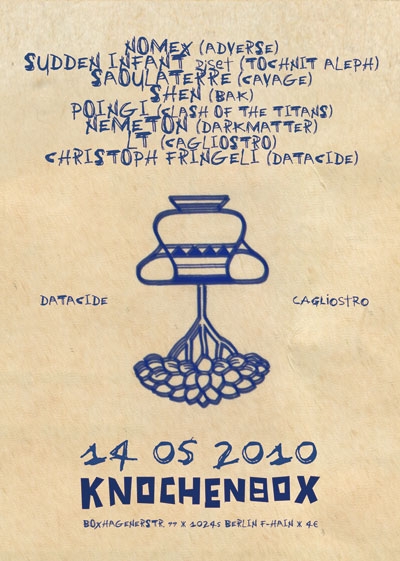 NOMEX (ADVERSE)
SUDDEN INFANT DJSET (TOCHNIT ALEPH)
SAOULATERRE (CAVAGE)
SHEN (BAK)
POINGI (CLASH OF THE TITANS)
NEMETON (DARKMATTER)
LT (CAGLIOSTRO)
CHRISTOPH FRINGELI (DATACIDE)
DATACIDE
CAGLIOSTRO
14 05 2010
KNOCHENBOX
BOXHAGENERSTR. 99 X 10245 BERLIN F-HAIN X 4€